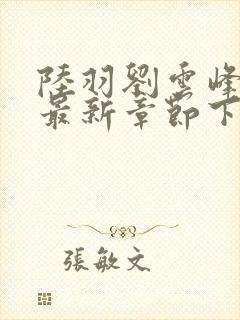 陸羽劉雲峰
最新章節下
張敏文